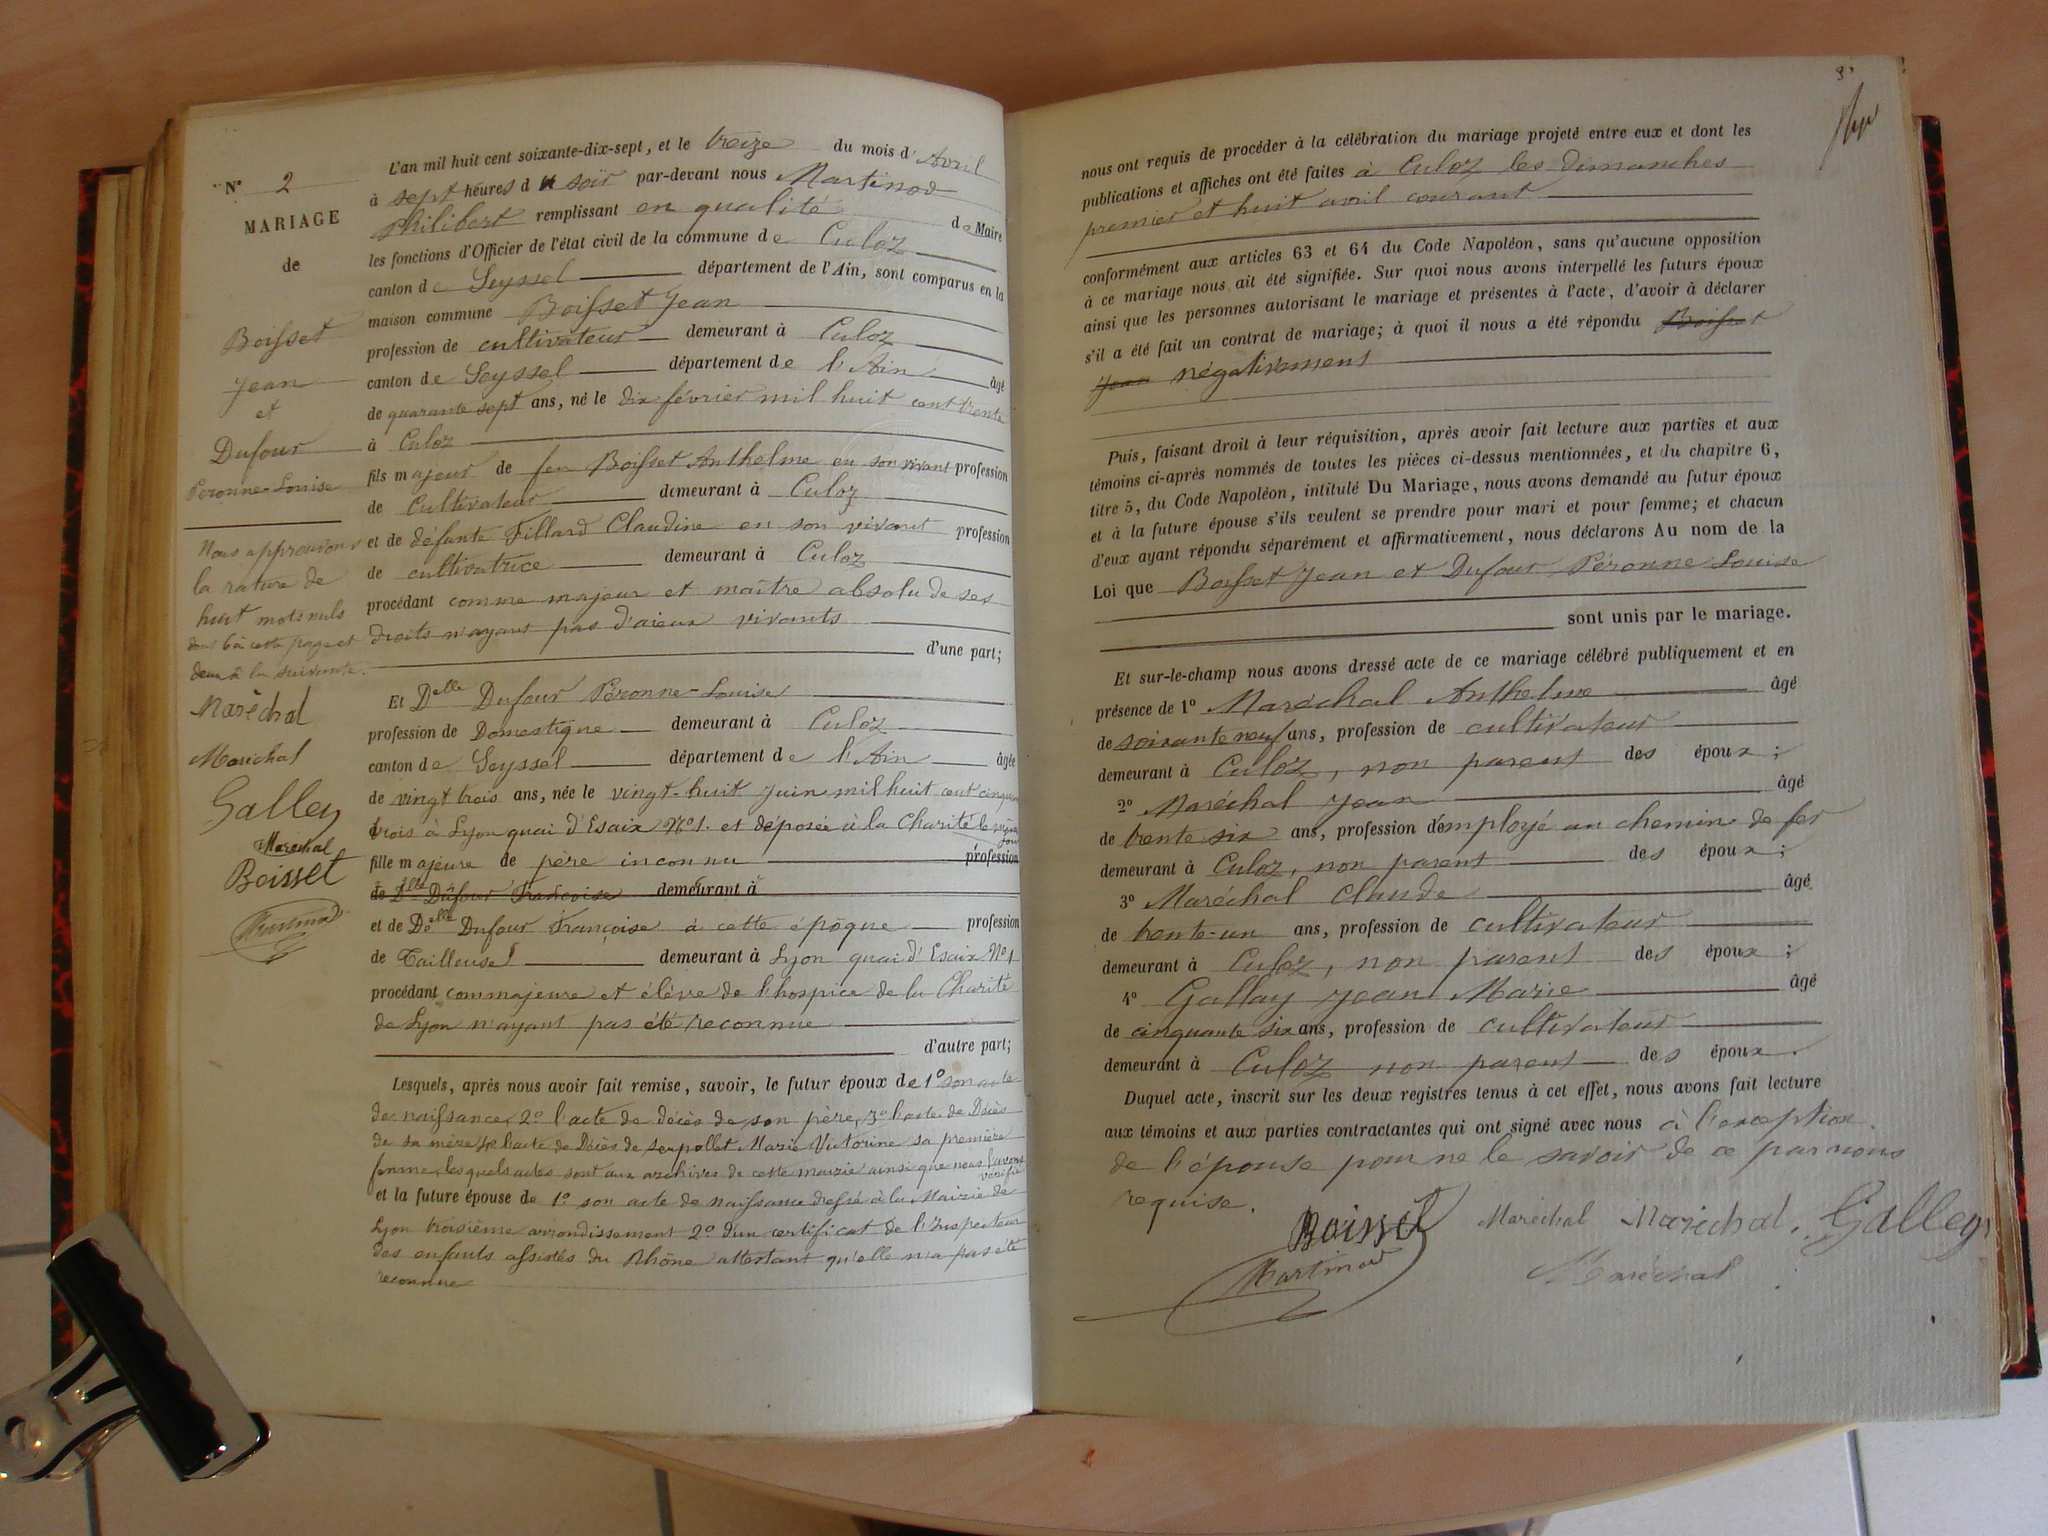 N° 2
MARIAGE
de
Boisset
Jean
et
Dufour
Péronne-Louise
Nous approuvons
la rature de
huit mots nuls
dont 6 à cette page et
deux à la suivante.
Maréchal
Maréchal
Galley
Maréchal
Boisset
Martinod
L'an mil huit cent soixante-dix-sept, et le treize du mois d'Avril
à sept heures du soir par-devant nous Martinod
Philibert remplissant en qualité de Maire
les fonctions d'Officier de l'état civil de la commune de Culoz
canton de Seyssel département de l'Ain, sont comparus en la
maison commune Boisset Jean
profession de cultivateur demeurant à Culoz
canton de Seyssel département de l'Ain âgé
de quarante sept ans, né le dix février mil huit cent trente
à Culoz
fils majeur de feu Boisset Anthelme en son vivant profession
de Cultivateur demeurant à Culoz
et de défunte Fillard Claudine en son vivant profession
de cultivatrice demeurant à Culoz
procédant comme majeur et maître absolu de ses
droits n'ayant pas d'aïeux vivants
d'une part;
Et Delle Dufour Péronne-Louise
profession de Domestique demeurant à Culoz
canton de Seyssel département de l'Ain âgée
de vingt trois ans, née le vingt-huit Juin mil huit cent cinquante
trois à Lyon quai d'Esaix N° 1. et déposée à la Charité le même jour
fille majeure de père inconnu profession
de Delle Dufour Françoise demeurant à
et de Delle Dufour Françoise à cette époque profession
de Tailleuse demeurant à Lyon quai d'Esaix N° 1
procédant comme majeure et élève de l'hospice de la Charité
de Lyon n'ayant pas été reconnue
d'autre part;
Lesquels, après nous avoir fait remise, savoir, le futur époux de 1° son acte
de naissance, 2° l'acte de décès de son père, 3° l'acte de Décès
de sa mère, 4° l'acte de Décès de Serpollet Marie Victorine sa première
femme, lesquels actes sont aux archives de cette mairie ainsi que nous l'avons vérifié
et la future épouse de 1° son acte de naissance dressé à la Mairie de
Lyon troisième arrondissement 2° d'un certificat de l'Inspecteur
des enfants assistés du Rhône attestant qu'elle n'a pas été
reconnue
nous ont requis de procéder à la célébration du mariage projeté entre eux et dont les
publications et affiches ont été faites à Culoz les dimanches
premier et huit avril courant
conformément aux articles 63 et 64 du Code Napoléon, sans qu'aucune opposition
à ce mariage nous ait été signifiée. Sur quoi nous avons interpellé les futurs époux
ainsi que les personnes autorisant le mariage et présentes à l'acte, d'avoir à déclarer
s'il a été fait un contrat de mariage; à quoi il nous a été répondu Boisset
Jean négativement
Puis, faisant droit à leur réquisition, après avoir fait lecture aux parties et aux
témoins ci-après nommés de toutes les pièces ci-dessus mentionnées, et du chapitre 6,
titre 5, du Code Napoléon, intitulé Du Mariage, nous avons demandé au futur époux
et à la future épouse s'ils veulent se prendre pour mari et pour femme; et chacun
d'eux ayant répondu séparément et affirmativement, nous déclarons Au nom de la
Loi que Boisset Jean et Dufour Péronne Louise
sont unis par le mariage.
Et sur-le-champ nous avons dressé acte de ce mariage célébré publiquement et en
présence de 1° Maréchal Anthelme âgé
de soixante neuf ans, profession de cultivateur
demeurant à Culoz, non parent des époux;
2° Maréchal Jean âgé
de trente six ans, profession d'employé au chemin de fer
demeurant à Culoz, non parent des époux;
3° Maréchal Claude âgé
de trente-un ans, profession de cultivateur
demeurant à Culoz, non parent des époux;
4° Gallay Jean Marie âgé
de cinquante six ans, profession de cultivateur
demeurant à Culoz non parent des époux.
Duquel acte, inscrit sur les deux registres tenus à cet effet, nous avons fait lecture
aux témoins et aux parties contractantes qui ont signé avec nous à l'exception
de l'épouse pour ne le savoir de ce par nous
requise.
Boisset Maréchal Maréchal. Galley
Martinod Maréchal